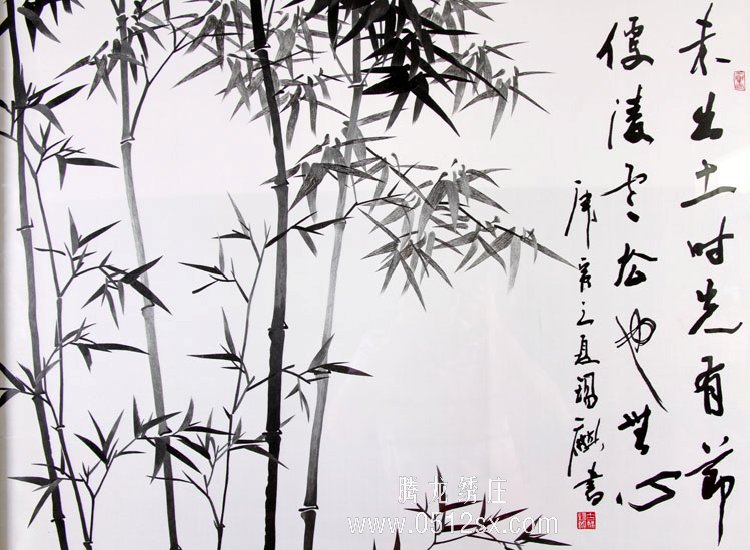 未出土时先有節
便凌云去也無心
庚寅之夏 麒書
腾龙绣庄
www.0512sx.com